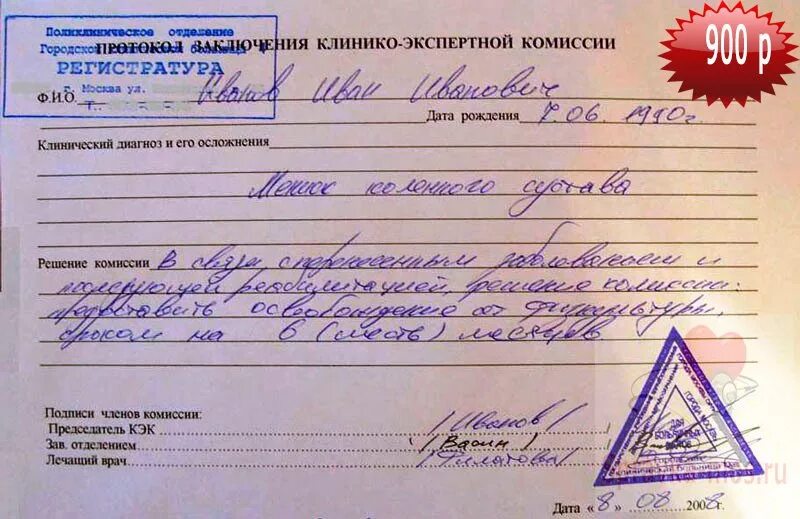 900 р
Поликлиническое отделение
Городской больницы
РЕГИСТРАТУРА
г. Москва ул.
Т.
ПРОТОКОЛ ЗАКЛЮЧЕНИЯ КЛИНИКО-ЭКСПЕРТНОЙ КОМИССИИ
Ф.И.О. Иванов Иван Иванович
Дата рождения 7.06.1990г
Клинический диагноз и его осложнения
Мениск коленного сустава
Решение комиссии В связи с перенесенным заболеванием и
последующей реабилитацией, решение комиссии:
предоставить освобождение от физкультуры,
сроком на 6 (шесть) месяцев
Подписи членов комиссии:
Председатель КЭК /Иванов/
Зав. отделением (Васин)
Лечащий врач /Филатова/
ДЛЯ
БОЛЬНИЧНЫХ
ГОРОДА МОСКВЫ
Дата «8» 08 2008г.
.ru